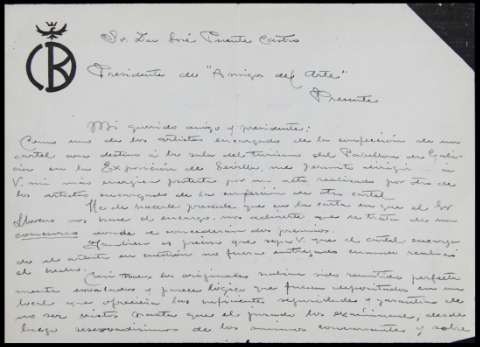 CB
Sr. Don José Puente Castro
Presidente de "Amigos del Arte"
Presente
Mi querido amigo y presidente:
Como uno de los artistas encargado de la confección de un
cartel con destino a la sala del turismo del Pabellón de Gali-
cia en la Exposición de Sevilla me permito dirigir a
V. mi más enérgica protesta por un acto realizado por otro de
los artistas encargados de la confección de otro cartel.
He de hacerle presente que en la carta en que el Sr.
nos hace el encargo, nos advierte que se trata de un
concurso donde se concederán dos premios.
También es preciso que sepa V. que el cartel encarga-
do al artista en cuestión no fué entregado
el
Casi todos los originales habían sido remitidos perfecta-
mente embalados y parece lógico que fueran depositados en un
local que ofreciera las suficientes seguridades y garantías de
no ser vistos hasta que el jurado los examinase, desde
luego de los mismos concursantes y sobre